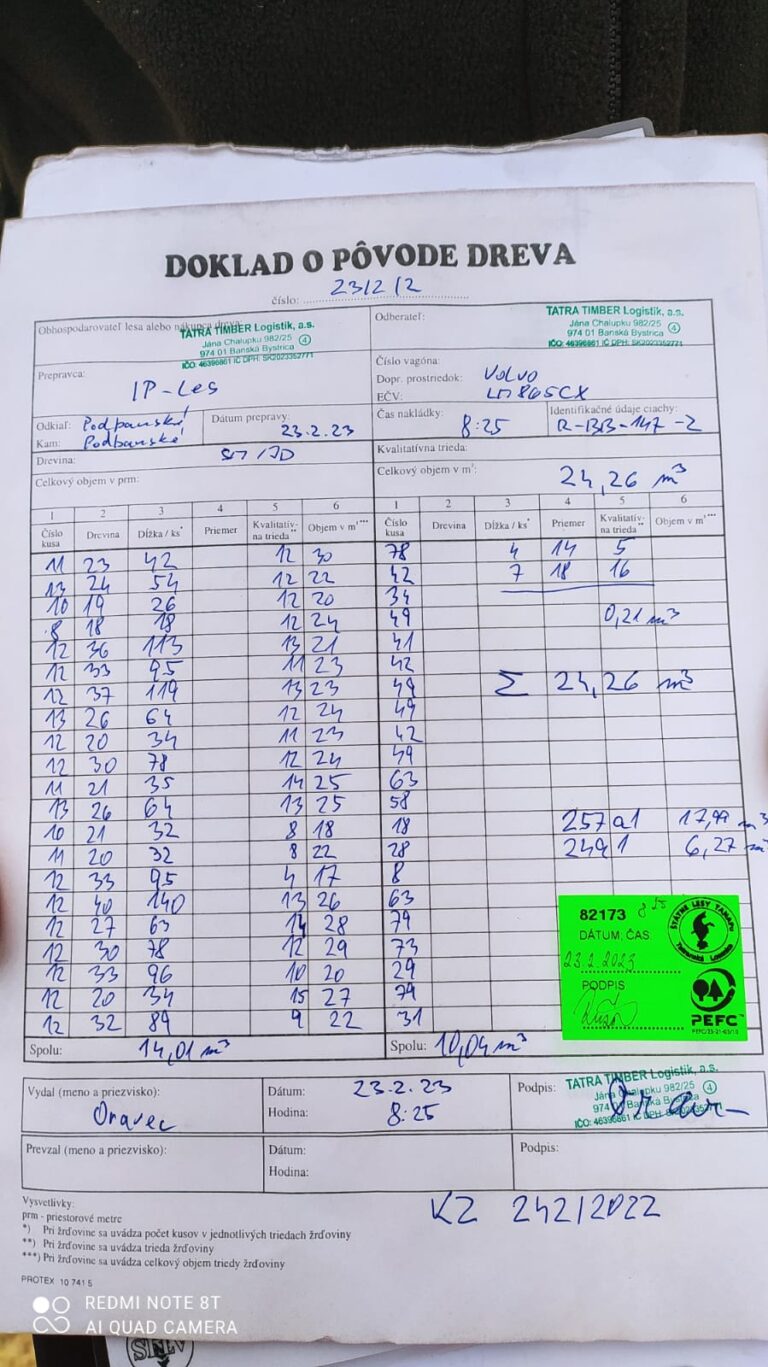 DOKLAD O PÔVODE DREVA
číslo: 23/2/2
Obhospodarovateľ lesa alebo nákupca dreva:
TATRA TIMBER Logistik, a.s.
Jána Chalupku 982/25
974 01 Banská Bystrica
4
IČO: 46396861 IČ DPH: SK2023352771
Odberateľ:
TATRA TIMBER Logistik, a.s.
Jána Chalupku 982/25
974 01 Banská Bystrica
4
IČO: 46396861 IČ DPH: SK2023352771
Prepravca:
IP-Les
Číslo vagóna:
Dopr. prostriedok: Volvo
EČV: LM865CX
Odkiaľ: Podbanské
Kam: Podbanské
Dátum prepravy: 23.2.23
Čas nakládky: 8:25
Identifikačné údaje ciachy: R-BB-147-2
Drevina: SM/JD
Kvalitatívna trieda:
Celkový objem v prm:
Celkový objem v m³: 24,26 m³
1 2 3 4 5 6 1 2 3 4 5 6
Číslo kusa Drevina Dĺžka / ks* Priemer Kvalitatív-na trieda** Objem v m³*** Číslo kusa Drevina Dĺžka / ks* Priemer Kvalitatív-na trieda** Objem v m³***
11 23 42 12 30 78 4 14 5
13 24 54 12 22 42 7 18 16
10 19 26 12 20 34
8 18 18 12 24 49 0,21 m³
12 36 113 13 21 41
12 33 95 11 23 42
12 37 119 13 23 49 Σ 24,26 m³
13 26 64 12 24 49
12 20 34 11 23 42
12 30 78 12 24 49
11 21 35 14 25 63
13 26 64 13 25 58
10 21 32 8 18 18 257a1 17,99 m³
11 20 32 8 22 28 249 1 6,27 m³
12 33 95 4 17 8
12 40 140 13 26 63
12 27 63 14 28 79
12 30 78 12 29 73
12 33 96 10 20 29
12 20 34 15 27 79
12 32 89 9 22 31
82173 8 25
DÁTUM, ČAS
23.2.2023
PODPIS
ŠTÁTNE LESY TANAPu
Tatranská Lomnica
PEFC
Spolu: 14,01 m³
Spolu: 10,04 m³
Vydal (meno a priezvisko):
Oravec
Dátum: 23.2.23
Hodina: 8:25
Podpis:
TATRA TIMBER Logistik, a.s.
Jána Chalupku 982/25
974 01 Banská Bystrica
4
IČO: 46396861 IČ DPH: SK2023352771
Prevzal (meno a priezvisko):
Dátum:
Hodina:
Podpis:
KZ 242/2022
Vysvetlivky:
prm - priestorové metre
*) Pri žrďovine sa uvádza počet kusov v jednotlivých triedach žrďoviny
**) Pri žrďovine sa uvádza trieda žrďoviny
***) Pri žrďovine sa uvádza celkový objem triedy žrďoviny
PROTEX 10 741 5
REDMI NOTE 8T
AI QUAD CAMERA